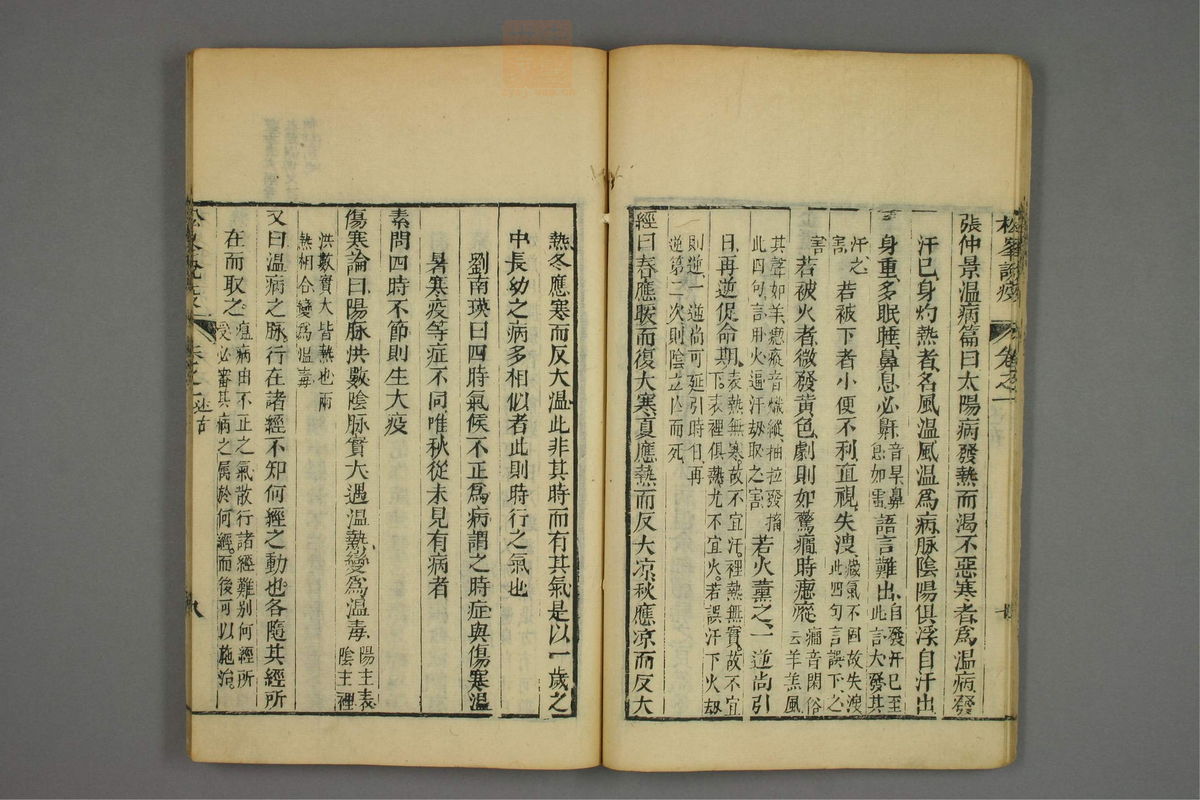 松峯說疫 卷之一
張仲景溫病篇曰太陽病發熱而渴不惡寒者爲溫病發
汗已身灼熱者名風溫風溫爲病脉陰陽俱浮自汗出
身重多眠睡鼻息必鼾音旱鼻息如雷語言難出自發汗已至此言大發其
汗之害若被下者小便不利直視失溲藏氣不固故失溲此四句言誤下之
害若被火者微發黄色劇則如驚癎時瘛瘲癎音閑俗云羊羔風
其聲如羊瘛瘲音熾縱抽拉發搐此四句言用火逼汗刼取之害若火薰之一逆尚引
日再逆促命期表熱無寒故不宜汗裡熱無實故不宜下表裡俱熱尤不宜火若誤汗下火刼
則逆一逆尚可延引時日再逆第二次則陰立亾而死
經曰春應暖而復大寒夏應熱而反大凉秋應凉而反大
熱冬應寒而反大溫此非其時而有其氣是以一歲之
中長幼之病多相似者此則時行之氣也
劉南瑛曰四時氣候不正爲病謂之時症與傷寒溫
暑寒疫等症不同唯秋從未見有病者
素問四時不節則生大疫
傷寒論曰陽脉洪數陰脉實大遇溫熱變爲溫毒陽主表陰主裡
洪數實大皆熱也兩熱相合變爲溫毒
又曰溫病之脉行在諸經不知何經之動也各隨其經所
在而取之瘟病由不正之氣散行諸經難别何經所受必審其病之屬於何經而後可以施治
卷之一 述古 八